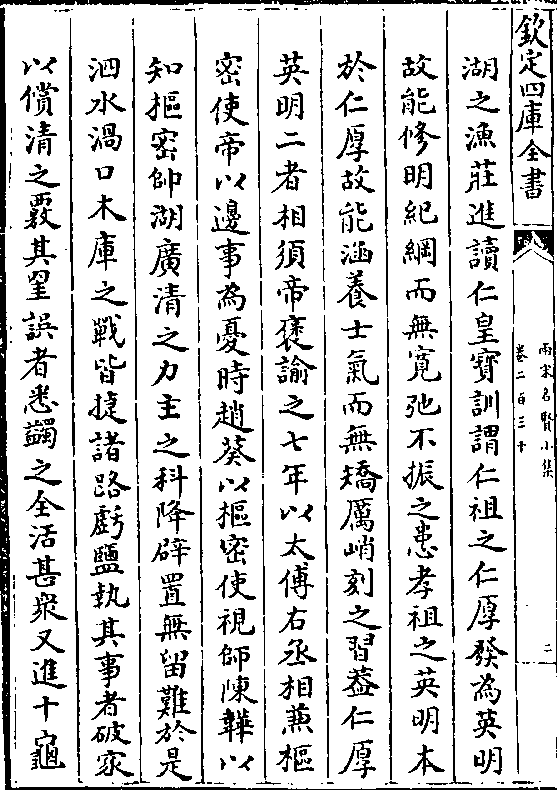 欽定四庫全書
兩宋名賢小集
卷二百三十
二
湖之漁莊進讀仁皇寶訓謂仁祖之仁厚發為英明
故能修明紀綱而無寛弛不振之患孝祖之英明本
於仁厚故能涵養士氣而無矯厲峭刻之習葢仁厚
英明二者相須帝褒諭之七年以太傅右丞相兼樞
密使帝以邊事為憂時趙葵以樞密使視師陳韡以
知樞密帥湖廣清之力主之科降辟置無留難於是
泗水渦口木庫之戰皆捷諸路虧鹽執其事者破家
以償清之覈其犀誤者悉蠲之全活甚衆又進十龜